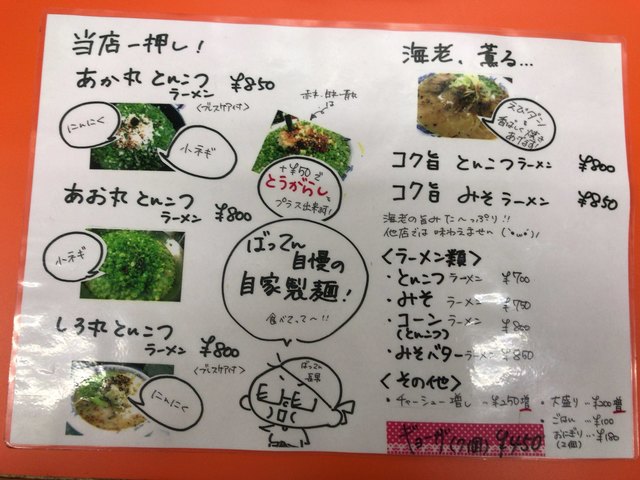 当店一押し!
あか丸 とんこつ
ラーメン ¥850
〈ブレスケア付〉
にんにく
小ネギ
赤・白・青丸
は
+¥50で
とうがらし
プラス出来ます!
あお丸 とんこつ
ラーメン ¥800
小ネギ
ばってん
自慢の
自家製麺!
食べてって〜!!
しろ丸 とんこつ
ラーメン ¥800
〈ブレスケア付〉
にんにく
ばってん
海老、薫る...
えびダシ
香ばしく焼き
あげます!
コク旨 とんこつラーメン ¥800
コク旨 みそラーメン ¥850
海老の旨みた〜っぷり!!
他店では味わえません(`•ω•´)ノ
〈ラーメン類〉
・とんこつラーメン ¥700
・みそ ラーメン ¥750
・コーン ラーメン ¥800
(とんこつ)
・みそバターラーメン ¥850
〈その他〉
・チャーシュー増し … ¥250増
・大盛り … ¥200増
・ごはん … ¥100
・おにぎり … ¥180
(2個)
ギョーザ(7個) ¥450